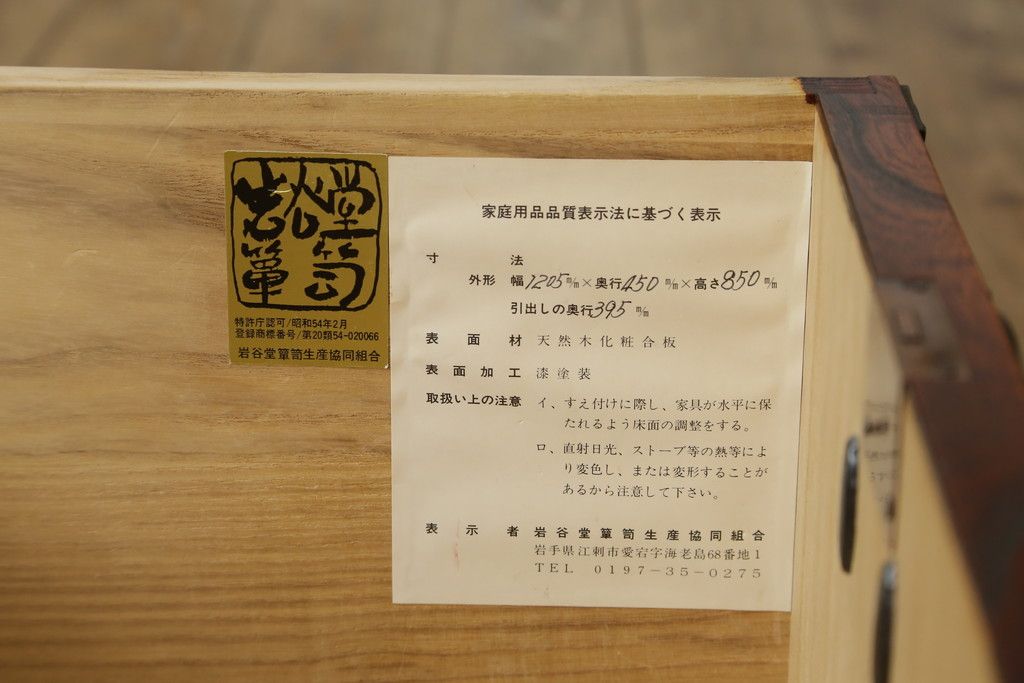 岩谷堂
簞笥
特許庁認可/昭和54年2月
登録商標番号/第20類54-020066
岩谷堂簞笥生産協同組合
家庭用品品質表示法に基づく表示
寸法
外形 幅1205m/m×奥行450m/m×高さ850m/m
引出しの奥行395m/m
表面材 天然木化粧合板
表面加工 漆塗装
取扱い上の注意 イ、すえ付けに際し、家具が水平に保
たれるよう床面の調整をする。
ロ、直射日光、ストーブ等の熱等によ
り変色し、または変形することが
あるから注意して下さい。
表示者 岩谷堂簞笥生産協同組合
岩手県江刺市愛宕字海老島68番地1
TEL 0197-35-0275